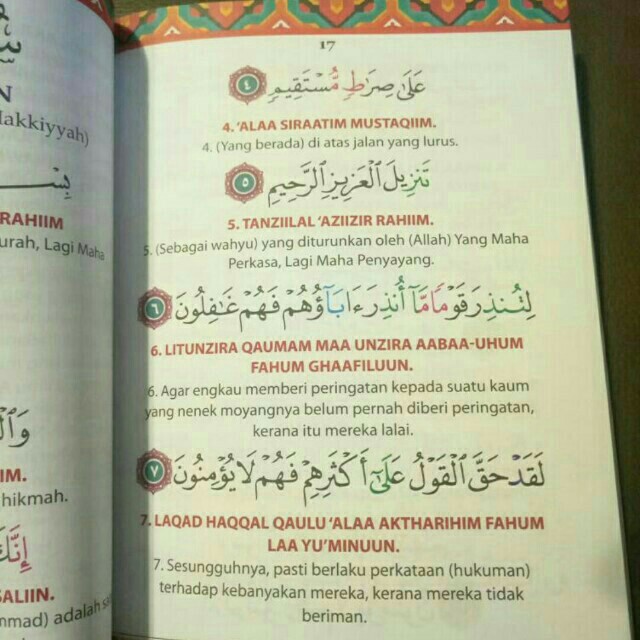 N
Makkiyyah)
RAHIIM
urah, Lagi Maha
IM.
hikmah.
SALIIN.
mmad) adalah sa
17
عَلَىٰ صِرَاطٍ مُّسْتَقِيمٍ ٤
4. ‘ALAA SIRAATIM MUSTAQIIM.
4. (Yang berada) di atas jalan yang lurus.
تَنزِيلَ ٱلْعَزِيزِ ٱلرَّحِيمِ ٥
5. TANZIILAL ‘AZIIZIR RAHIIM.
5. (Sebagai wahyu) yang diturunkan oleh (Allah) Yang Maha
Perkasa, Lagi Maha Penyayang.
لِتُنذِرَ قَوْمًا مَّآ أُنذِرَ ءَابَآؤُهُمْ فَهُمْ غَٰفِلُونَ ٦
6. LITUNZIRA QAUMAM MAA UNZIRA AABAA-UHUM
FAHUM GHAAFILUUN.
6. Agar engkau memberi peringatan kepada suatu kaum
yang nenek moyangnya belum pernah diberi peringatan,
kerana itu mereka lalai.
لَقَدْ حَقَّ ٱلْقَوْلُ عَلَىٰٓ أَكْثَرِهِمْ فَهُمْ لَا يُؤْمِنُونَ ٧
7. LAQAD HAQQAL QAULU ‘ALAA AKTHARIHIM FAHUM
LAA YU’MINUUN.
7. Sesungguhnya, pasti berlaku perkataan (hukuman)
terhadap kebanyakan mereka, kerana mereka tidak
beriman.